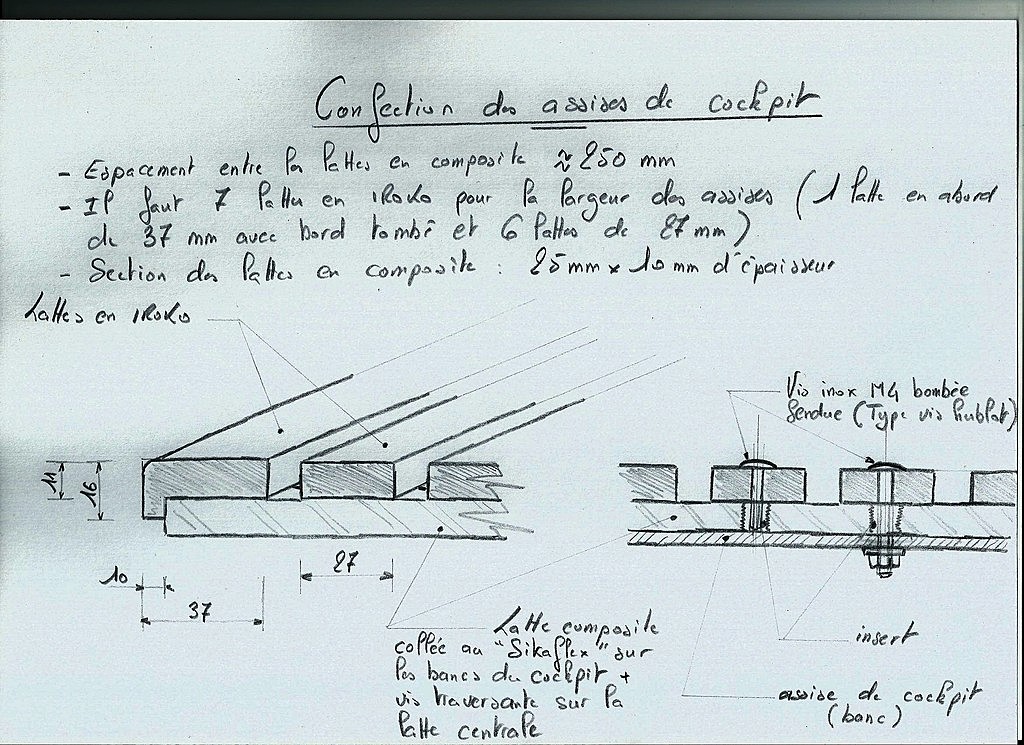 Confection des assises de cockpit
- Espacement entre les lattes en composite ≈ 250 mm
- Il faut 7 lattes en IROKO pour la largeur des assises (1 latte en abord
de 37 mm avec bord tombé et 6 lattes de 27 mm)
- Section des lattes en composite : 25 mm x 10 mm d'épaisseur
Lattes en IROKO
Vis inox M4 bombée
fendue (Type vis hublot)
11
16
10
37
27
Latte composite
collée au "Sikaflex" sur
les bancs du cockpit +
vis traversante sur la
latte centrale
insert
assise de cockpit
(banc)